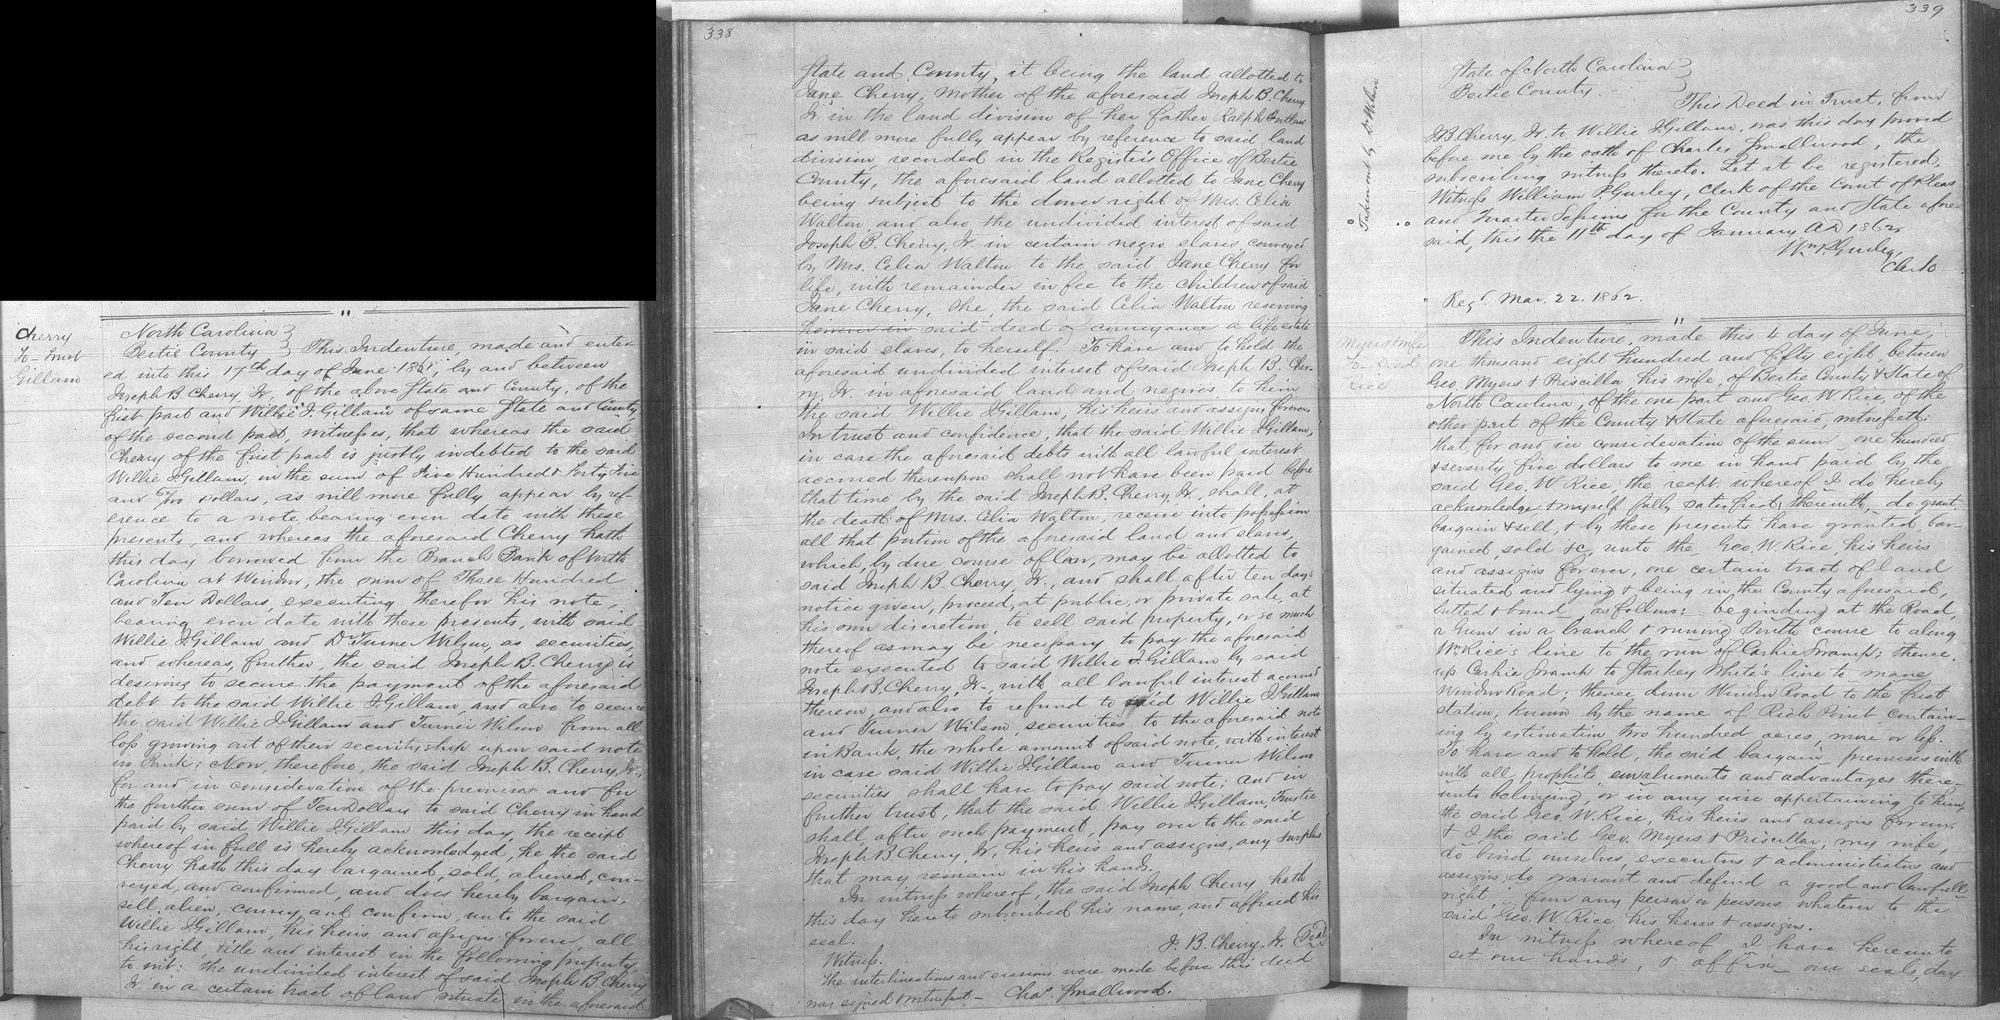 Cherry
To - Trust
Gillam
North Carolina }
Bertie County } This Indenture, made and enter-
ed into this 17th day of June 1861, by and between
Joseph B. Cherry Jr, of the above State and County, of the
first part and Willie J. Gillam of same State and County
of the second part, witnesses, that whereas the said
Cherry of the first part is justly indebted to the said
Willie J. Gillam, in the sum of Five Hundred & Forty Five
and /100 dollars, as will more fully appear by ref-
erence to a note bearing even date with these
presents, and whereas the aforesaid Cherry hath
this day borrowed from the Branch Bank of North
Carolina at Windsor, the sum of Three Hundred
and Ten Dollars, executing therefor his note,
bearing even date with these presents, with said
Willie J. Gillam and Dr Turner Wilson, as securities,
and whereas, further, the said Joseph B. Cherry is
desiring to secure the payment of the aforesaid
debt to the said Willie J. Gillam, and also to secure
the said Willie J. Gillam and Turner Wilson from all
loss growing out of their securityship upon said note
in Bank; Now, therefore, the said Joseph B. Cherry, Jr.,
for and in consideration of the premises and for
the further sum of Ten Dollars to said Cherry in hand
paid by said Willie J. Gillam this day, the receipt
whereof in full is hereby acknowledged, he the said
Cherry hath this day bargained, sold, aliened, con-
veyed, and confirmed, and does hereby bargain,
sell, alien, convey and confirm, unto the said
Willie J. Gillam, his heirs and assigns forever, all
his right, title and interest in the following property,
to wit: the undivided interest of said Joseph B. Cherry
Jr. in a certain tract of land situate in the aforesaid
338
State and County, it being the land allotted to
Jane Cherry, mother of the aforesaid Joseph B. Cherry
Jr in the land division of her father Ralph Outlaw
as will more fully appear by reference to said land
division, recorded in the Register's Office of Bertie
County, the aforesaid land allotted to Jane Cherry
being subject to the dower right of Mrs. Celia
Walton, and also the undivided interest of said
Joseph B. Cherry, Jr. in certain negro slaves, conveyed
by Mrs. Celia Walton to the said Jane Cherry for
life, with remainder in fee to the children of said
Jane Cherry, she, the said Celia Walton reserving
however in said deed of conveyance a life estate
in said slaves, to herself. To have and to hold the
aforesaid undivided interest of said Joseph B. Cher-
ry, Jr. in aforesaid land and negroes, to him
the said Willie J. Gillam, his heirs and assigns forever.
In trust and confidence, that the said Willie J. Gillam,
in case the aforesaid debts with all lawful interest
accrued thereupon shall not have been paid before
that time by the said Joseph B. Cherry, Jr., shall, at
the death of Mrs. Celia Walton, receive into possession
all that portion of the aforesaid land and slaves,
which, by due course of law, may be allotted to
said Joseph B Cherry, Jr., and shall after ten days
notice given, proceed, at public, or private sale, at
his own discretion, to sell said property, or so much
thereof as may be necessary to pay the aforesaid
note executed to said Willie J. Gillam by said
Joseph B. Cherry, Jr., with all lawful interest accrued
thereon, and also to refund to said Willie J. Gillam
and Turner Wilson, securities to the aforesaid note
in Bank, the whole amount of said note, with interest
in case said Willie J. Gillam and Turner Wilson
securities shall have to pay said note; and in
further trust, that the said Willie J. Gillam, Trustee
shall after such payment, pay over to the said
Joseph B. Cherry, Jr, his heirs and assigns, any surplus
that may remain in his hands.
In witness whereof, the said Joseph Cherry hath
this day hereto subscribed his name, and affixed his
seal.
J. B. Cherry, Jr. (Seal)
Witness.
The interlineations and erasions were made before this deed
was signed & witnessed - Chas. Smallwood.
339
Taken out by Dr Wilson
State of North Carolina }
Bertie County. }
This Deed in Trust, from
J. B. Cherry, Jr. to Willie J. Gillam, was this day proved
before me by the oath of Charles Smallwood, the
subscribing witness thereto. Let it be registered.
Witness William P. Gurley, Clerk of the Court of Pleas
and Quarter Sessions for the County and State afore-
said, this the 11th day of January AD 1862
Wm P. Gurley,
Clerk
Regd. Mar. 22. 1862.
Myers & wife
To - Deed
Rice
This Indenture, made this 4 day of June,
one thousand eight hundred and fifty eight between
Geo. Myers & Priscilla, his wife, of Bertie County & State of
North Carolina, of the one part and Geo. W. Rice, of the
other part of the County & State aforesaid, witnesseth:
that for and in consideration of the sum one hundred
& seventy five dollars to me in hand paid by the
said Geo. W Rice, the recpt. whereof I do hereby
acknowledge & myself fully satisfied therewith, do grant,
bargain & sell, & by these presents have granted bar-
gained sold &c, unto the Geo. W. Rice, his heirs
and assigns forever, one certain tract of land
situated and lying & being in the County aforesaid,
butted & bound as follows: beginding at the Road,
a Gum in a branch & runing South course to along
Wm Rice's line to the run of Cashie Swamp; thence
up Cashie Swamp to Starkey White's line to mane
Windsor Road; thence down Windsor Road to the first
station, known by the name of Rich Point contain-
ing by estimation two hundred acres, more or less.
To have and to hold, the said bargain premises with
with all prophits emoluments and advantages there-
unto belonging, or in any wise appertaining to him,
the said Geo. W. Rice, his heirs and assigns forever.
& I the said Geo. Myers & Priscillar, my wife,
do bind ourselves, executors & administrators and
assigns, do warrant and defend a good and lawfull
right, from any person or persons whatever to the
said Geo. W. Rice his heirs & assigns.
In witness whereof I have hereunto
set our hands, & affix our seals, day